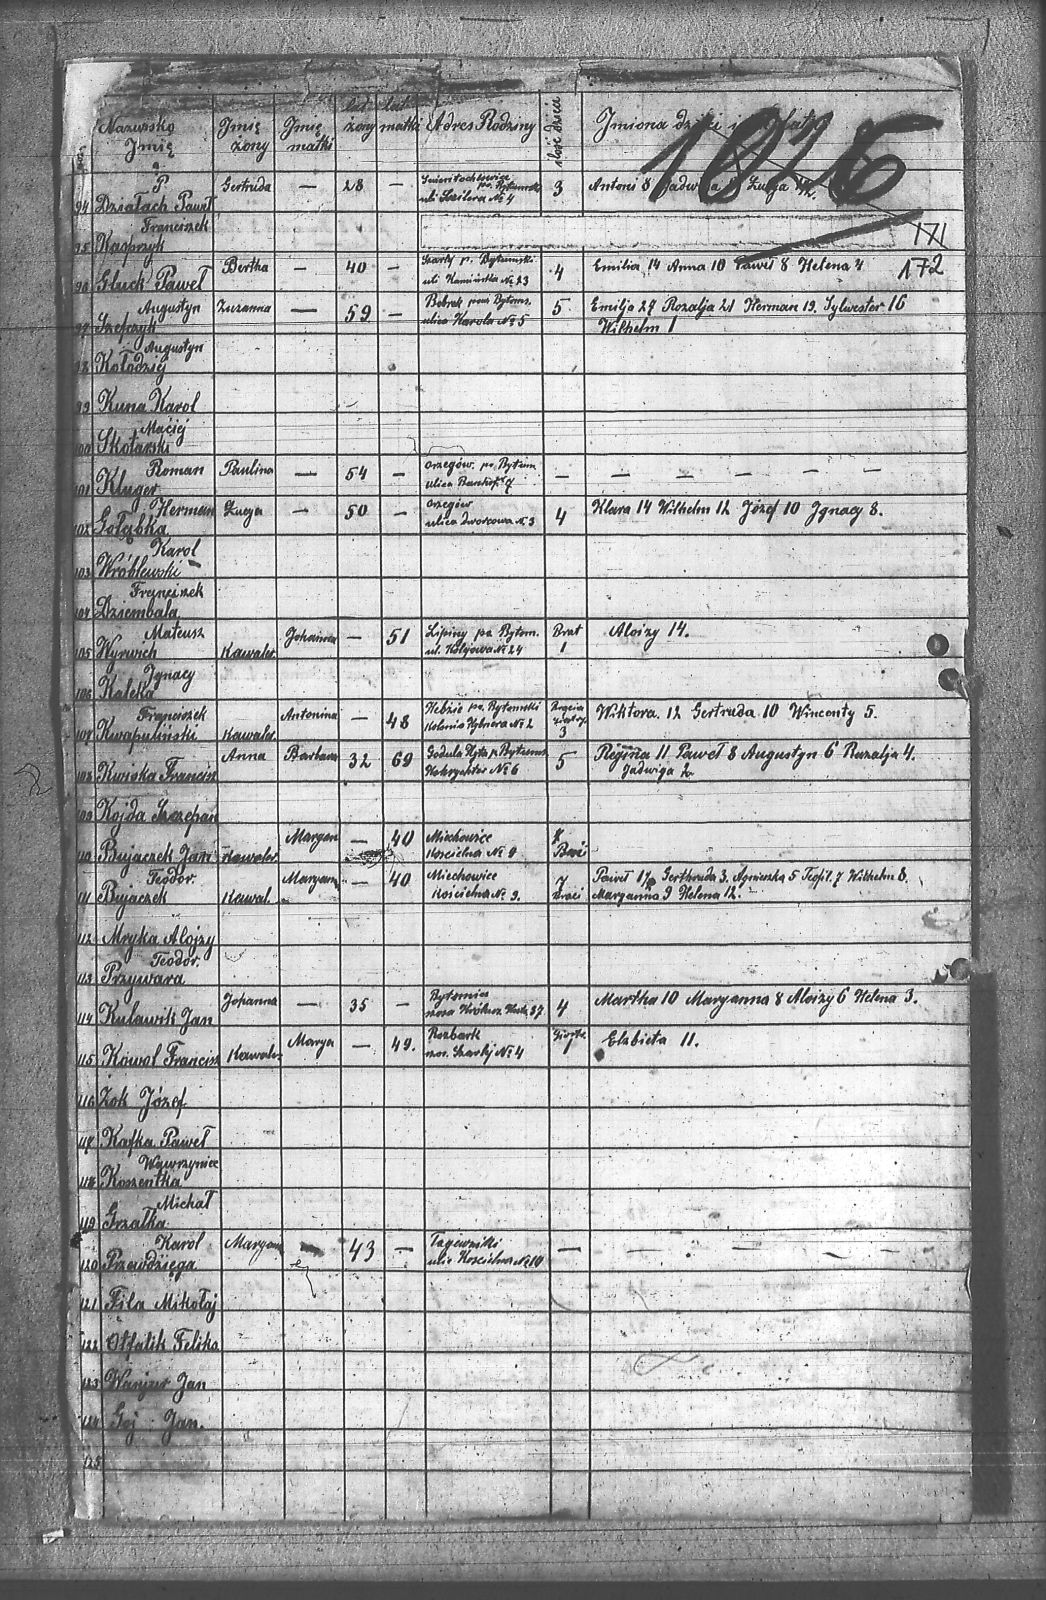 Nazwisko Imię
Imię żony
Imię matki
lat żony
lat matki
Adres Rodziny
ilość dzieci
Jmiona dzieci i lata
1026
171
172
94 Działach Paweł Gertruda — 28 — Świentochłowice po. Bytomski ul. Szilera № 4 3 Antoni 8 Jadwiga Łucja
95 Franciszek Kasprzyk
96 Gluck Paweł Bertha — 40 — Szarlej p. Bytomski ul. № 23 4 Emilia 14 Anna 10 Paweł 8 Helena 4
97 Augustyn Szefczyk Zuzanna — 59 — Bobrek pow. Bytoms. ulica Karola № 5 5 Emilja 27 Rozalja 21 Herman 19 Sylwester 16
Wilhelm 1
98 Augustyn Kołodziej
99 Kuna Karol
100 Maciej Skolarski
101 Roman Kluger Paulina — 54 — Orzegów. po. Bytom. ulica № 7 — — — — — —
102 Herman Gołąbka Łucya — 50 — Orzegów ulica Dworcowa № 3 4 Klara 14 Wilhelm 12 Józef 10 Jgnacy 8.
103 Karol Wróblewski
104 Franciszek Dziembala
105 Mateusz Wyrwich Kawaler Johanna — 51 Lipiny po. Bytom. ul. Kolejowa № 24 Brat 1 Aloizy 14.
106 Jgnacy Kaleka
107 Franciszek Kwapuliński Kawaler Antonina — 48 po. Bytomski Kolonia № 2 3 Wiktora. 12 Gertruda. 10 Wincenty 5.
108 Kwioka Francisz Anna Barbara 32 69 Godula Huta p. Bytoms. № 6 5 Regina 11 Paweł 8 Augustyn 6 Ruzalja 4.
Jadwiga
109 Kojda Szczepan
110 Bujaczek Jan Kawaler Maryan — 40 Miechowice Kościelna № 9 Braci
111 Teodor. Bujaczek Kawal. Maryann — 40 Miechowice Kościelna № 9. 7 Braci Paweł Gerthruda 3. Agnieszka 5 Teofil. 7 Wilhelm 8.
Maryanna 9 Helena 12.
112 Mryka Alojzy
113 Teodor. Przywara
114 Kulawik Jan Johanna — 35 — Bytomia 37 4 Martha 10 Maryanna 8 Aloizy 6 Helena 3.
115 Kowol Francisz Kawaler Marya — 49. Rozbark Szarlej № 4 Siostr. 1 Elzbieta 11.
116 Zok Józef
117 Kafka Paweł
118 Wawrzyniec Koszentka
119 Michał Grzałka
120 Karol Przewdzięga Maryan — 43 — Łagewniki ulic Kościelna № 10 — — — — — —
121 Fila Mikołaj
122 Otfalik Feliks
123 Wanjur Jan
124 Goj Jan.
125